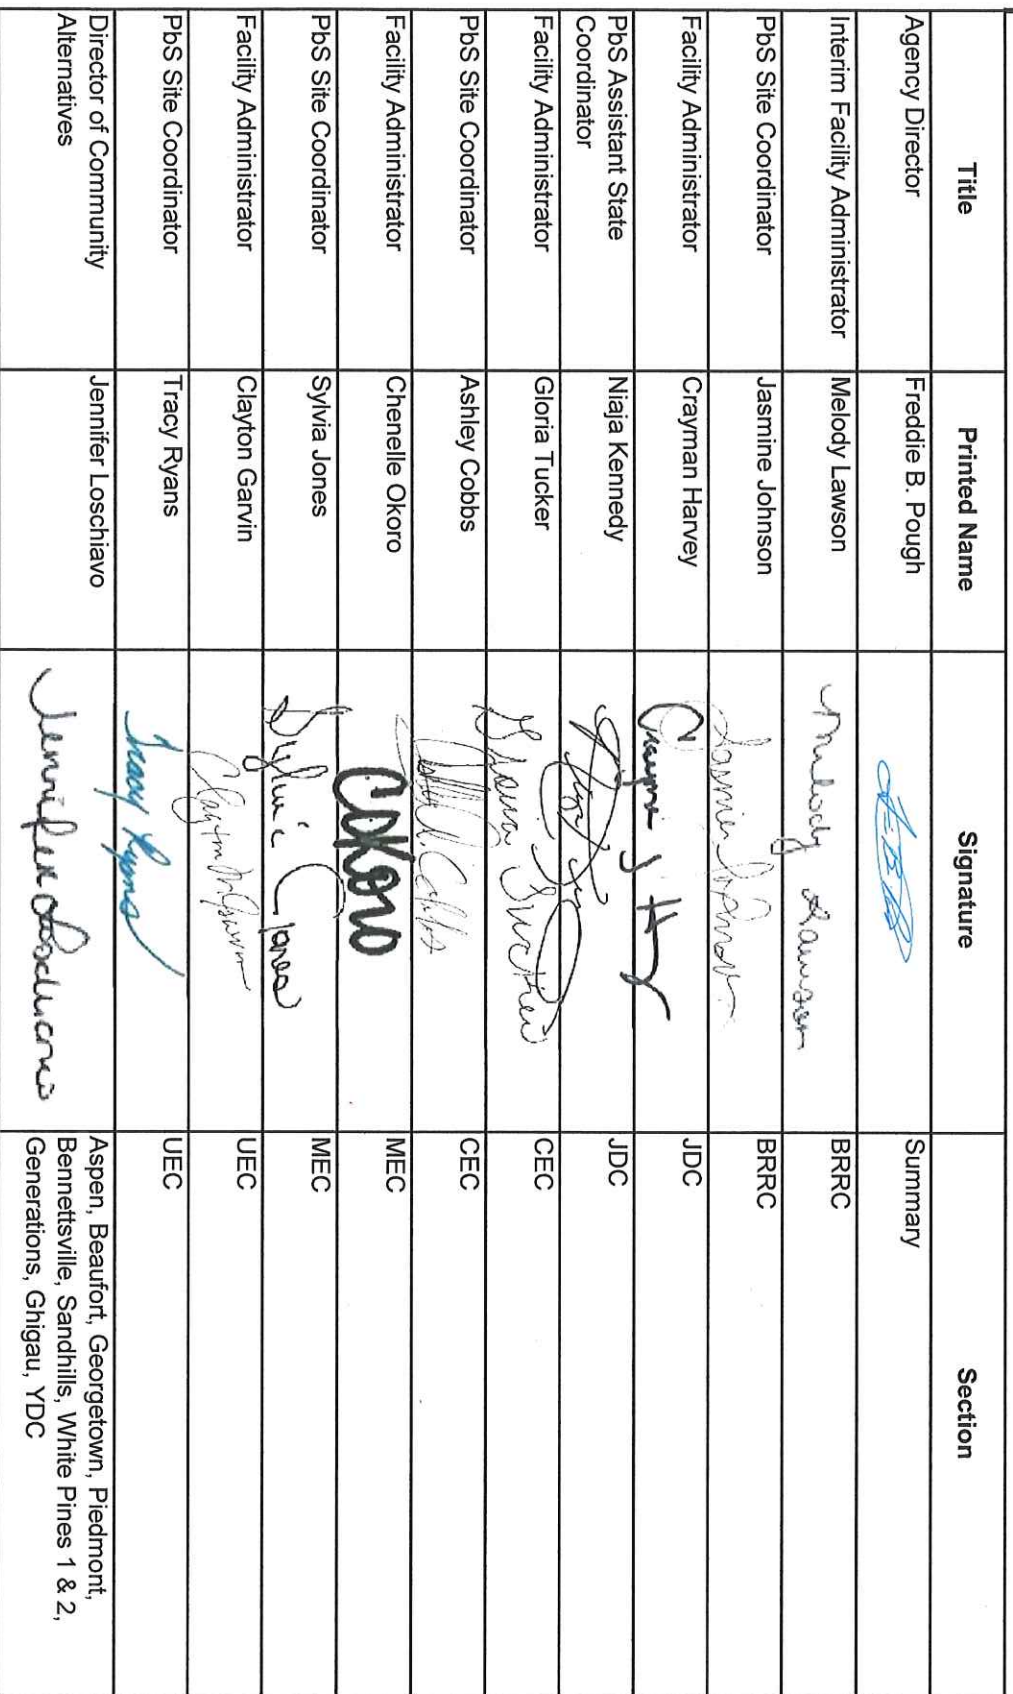 Title Printed Name Signature Section
Agency Director Freddie B. Pough Summary
Interim Facility Administrator Melody Lawson Melody Lawson BRRC
PbS Site Coordinator Jasmine Johnson Jasmine Johnson BRRC
Facility Administrator Crayman Harvey JDC
PbS Assistant State
Coordinator
Niaja Kennedy JDC
Facility Administrator Gloria Tucker Gloria Tucker CEC
PbS Site Coordinator Ashley Cobbs Cobbs CEC
Facility Administrator Chenelle Okoro COKORO MEC
PbS Site Coordinator Sylvia Jones Sylvia Jones MEC
Facility Administrator Clayton Garvin UEC
PbS Site Coordinator Tracy Ryans Tracy Ryans UEC
Director of Community
Alternatives
Jennifer Loschiavo Jennifer Loschiavo
Aspen, Beaufort, Georgetown, Piedmont,
Bennettsville, Sandhills, White Pines 1 & 2,
Generations, Ghigau, YDC